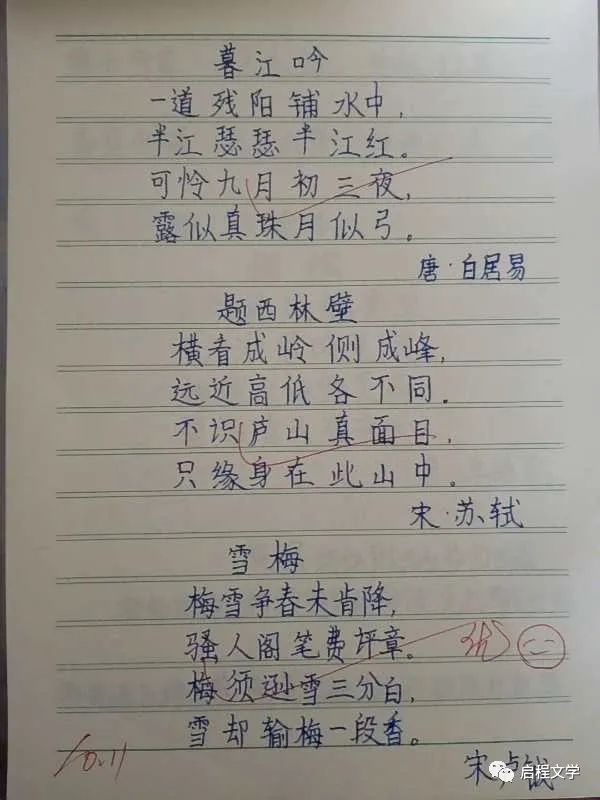 暮江吟
一道残阳铺水中，
半江瑟瑟半江红。
可怜九月初三夜，
露似真珠月似弓。
唐·白居易
题西林壁
横看成岭侧成峰，
远近高低各不同。
不识庐山真面目，
只缘身在此山中。
宋·苏轼
雪梅
梅雪争春未肯降，
骚人阁笔费评章。
梅须逊雪三分白，
雪却输梅一段香。
优
10.11
宋·卢钺
启程文学